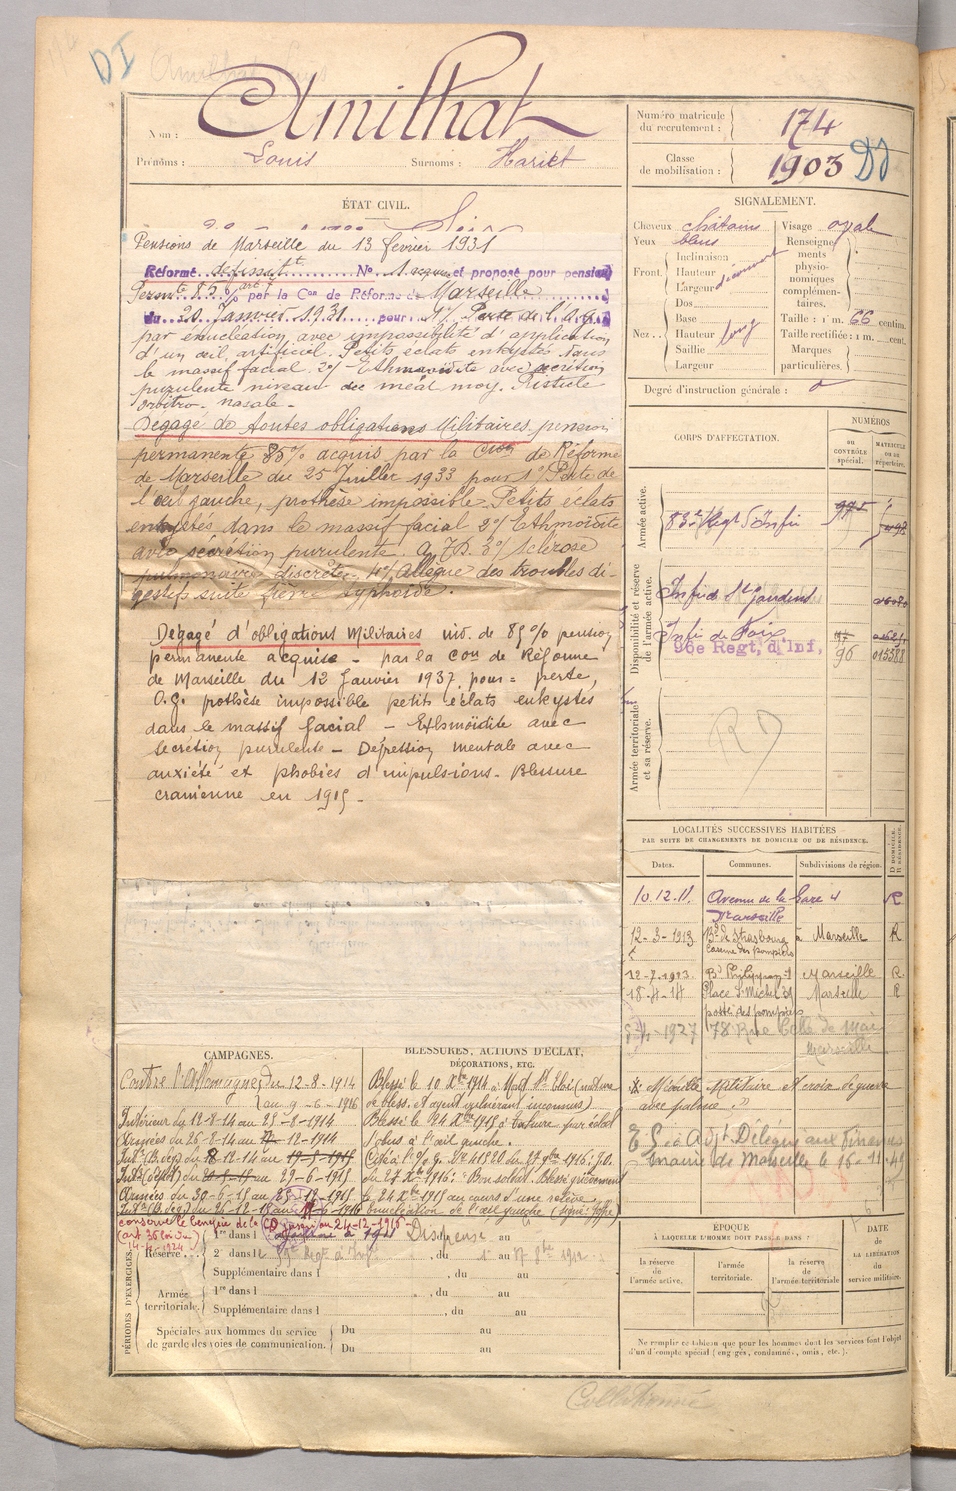 DI
Nom : Amilhat
Prénoms : Louis Surnoms :
Numéro matricule
du recrutement : 174
Classe
de mobilisation : 1903
ÉTAT CIVIL.
Pensions de Marseille du 13 février 1931
Réformé définitt N° et proposé pour pension
Permte 85 % par la Con de Réforme de Marseille
du 20 Janvier 1931 pour 1°/ Perte de l'O.g.
par enucléation, avec impossibilité d'application
d'un œil artificiel. Petits éclats enkystés dans
le massif facial. 2°/ Ethmoïdite avec secrétion
purulente niveau du méat moy. Fistule
orbitro-nasale-
Dégagé de toutes obligations Militaires. pension
permanente 85% acquis par la Cion de Réforme
de Marseille du 25 Juillet 1933 pour 1° Perte de
l'œil gauche, prothèse impossible. Petits éclats
enkystés dans le massif facial 2°/ Ethmoïdite
avec sécrétion purulente. 3°/ Sclérose
pulmonaire discrète- 4°/ Allègue des troubles di-
gestifs suite fièvre typhoïde.
Dégagé d'obligations Militaires inv. de 85% pension
permanente acquise - par la Con de Réforme
de Marseille du 12 Janvier 1937 pour = perte,
O.G. prothèse impossible petits éclats enkystés
dans le massif facial - Ethmoïdite avec
secrétion purulente - Dépression mentale avec
anxiété et phobies d'impulsions. Blessure
cranienne en 1915.
SIGNALEMENT.
Cheveux châtains Visage oval
Yeux bleus Renseigne-
ments
physio-
nomiques
complémen-
taires.
Front. Inclinaison
Hauteur découvert
Largeur
Nez. Dos
Base
Hauteur long
Saillie
Largeur
Taille : 1 m. 66 centim.
Taille rectifiée : 1 m. cent.
Marques
particulières.
Degré d'instruction générale :
CORPS D'AFFECTATION.
NUMÉROS
OU CONTRÔLE spécial.
MATRICULE OU DU répertoire.
Armée active.
83e Regt d'Infie
Disponibilité et réserve
de l'armée active.
Infie de St Gaudens
Infie de Foix
96e Regt, d'Inf, 96 015388
Armée territoriale
et sa réserve.
LOCALITÉS SUCCESSIVES HABITÉES
PAR SUITE DE CHANGEMENTS DE DOMICILE OU DE RÉSIDENCE.
Dates. Communes. Subdivisions de région. D DOMICILE. R RÉSIDENCE.
10.12.11. Avenue de la Gare 4 R
Marseille
12-3-1913 Bd de Strasbourg à Marseille R
Caserne des pompiers
Marseille R.
18-4-14 Place St Michel Marseille R
poste des pompiers
1927 78 Rue Belle de Mai
Marseille
Médaille Militaire et croix de guerre
avec palme "
Mairie de Marseille le
CAMPAGNES.
Contre l'Allemagne du 12-8-1914
au 9-6-1916
Intérieur du 12-8-14 au 25-8-1914
Armées du 26-8-14 au 12-1914
Intr (B. dep) du 12-14 au
Intr (dépôt) du au 29-6-1915
Armées du 30-6-15 au
Intr (B. deg) du 26-12-15 au 6-1916
conserve le bénéfice de la CD jusqu'au 24-12-1916-
(art 36 loi du
14-4-1924)
BLESSURES, ACTIONS D'ÉCLAT,
DÉCORATIONS, ETC.
Blessé le 10 Xbre 1914 à (nature
de bless. et agent vulnérant inconnus)
Blessé le 24 Xbre 1915 à par éclat
d'obus à l'œil gauche.
Bon soldat. Blessé grièvement
le 24 Xbre 1915 au cours d'une relève,
énucléation de l'œil gauche
PÉRIODES D'EXERCICES.
Réserve 1re dans l Dispensé au
2e dans l du 1er au 17
Supplémentaire dans l , du au
Armée
territoriale. 1re dans l , du au
Supplémentaire dans l , du au
Spéciales aux hommes du service
de garde des voies de communication. Du au
Du au
ÉPOQUE
À LAQUELLE L'HOMME DOIT PASSER DANS :
la réserve de l'armée active. l'armée territoriale. la réserve de l'armée territoriale
DATE
DE LA LIBÉRATION
du service militaire.
Ne remplir ce tableau que pour les hommes dont les services font l'objet
d'un décompte spécial (engagés, condamnés, omis, etc.).
Collationné